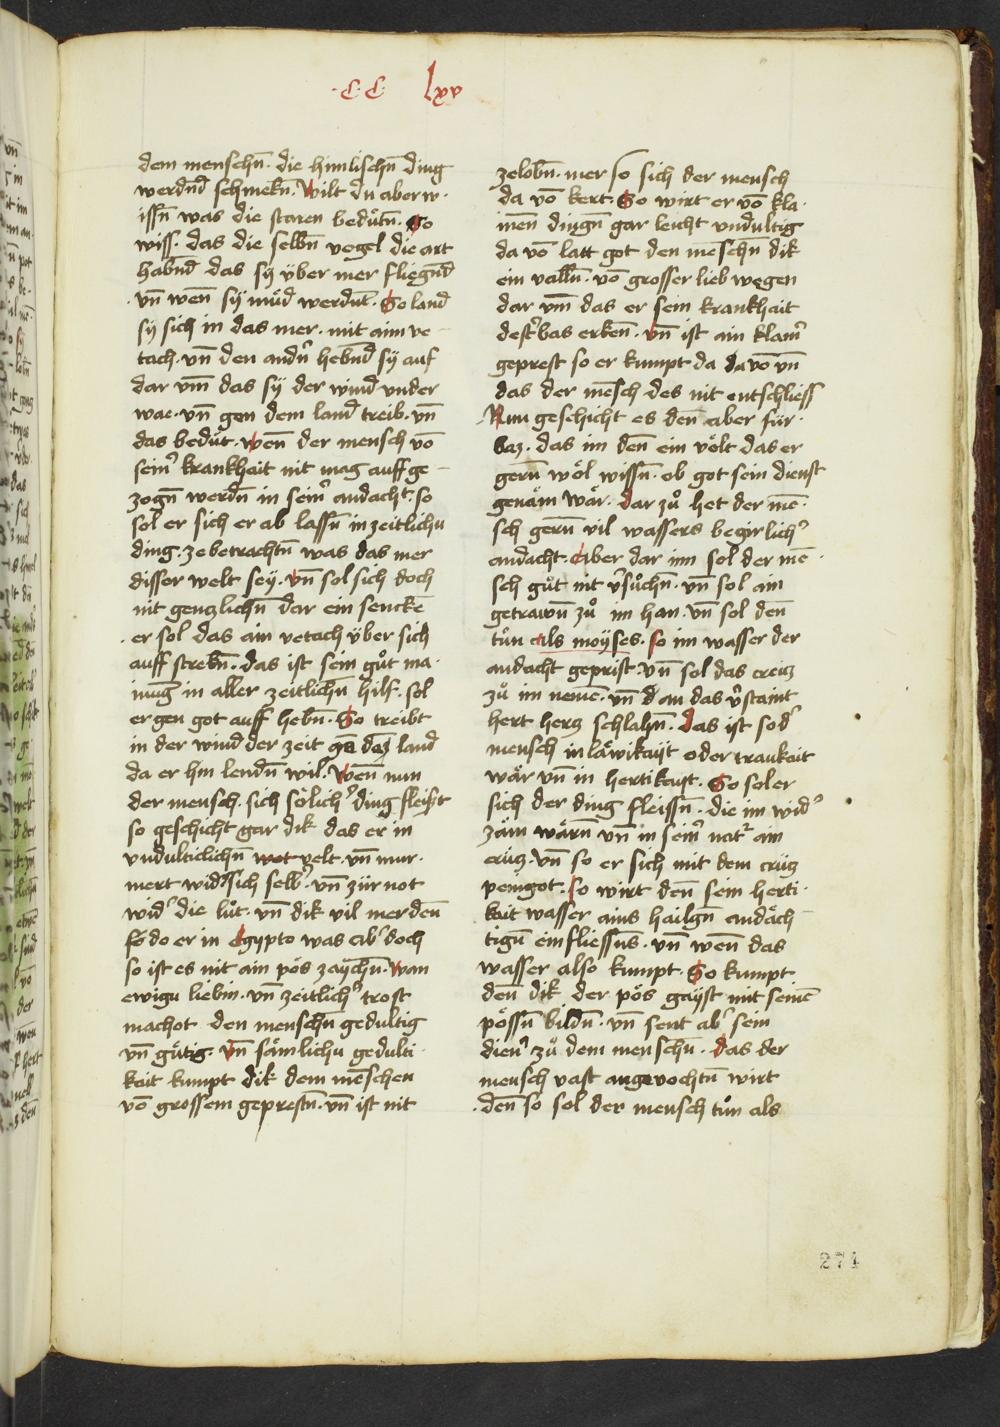 ·C·C· lxv
dem menschn̄· die himlischn̄ ding
werdn̄d schmekn̄· Wilt du aber w·
issn̄ was die staren bedu̇tn̄· So
wiss· das die selbn̄ vogel die art
habn̄d das sÿ ÿber mer fliegn̄d
vn̄ wen̄ sÿ mu̇d werdn̄t· So land
sÿ sich in das mer· mit aim ve-
tach· vn̄ den andn̄ hebn̄d sÿ auf
dar vm̄ das sÿ der wind vnder
wae· vn̄ gen dem land treib· vn̄
das bedu̇t· wen̄ der mensch vō
seinr̄ krankhait nit mag auff ge-
zogn̄ werdn̄ in seinr̄ andacht· so
sol er sich er ab lassn̄ in zeitlichu
ding· ze betrachtn̄ was das mer
disser welt seÿ· vn̄ sol sich doch
nit genczlichn̄ dar ein senckē
er sol das ain vetach ÿber sich
auff strebn̄· das ist sein gůt ma·
inuḡ in aller zeitlichn̄ hilf· sol
er gen got auff hebn̄· So treibt
in der wind der zeit gē daz land
da er hin lendn̄ wil· Wen̄ nun
der mensch· sich sölichr̄ ding fleisst
so geschicht gar dik das er in
vndulticlichn̄ velt· vn̄ mur·
mert widr̄ sich selbr̄· vn̄ zürnot
widr̄ die lu̇t· vn̄ dik vil mer den̄
fō do er in egypto was abr̄ doch
so ist es nit ain pös zaÿchn̄· wan
ewigu liebin· vn̄ zeitlichr̄ trost
machot den menschn̄ gedultig
vn̄ gu̇tig· vn̄ sämlichu gedulti·
kait kumpt dik dem menschen
vō grossem geprestn̄· vn̄ ist nit
zelobn̄· mer so sich der mensch
da vō kert· So wirt er vō kla·
inen̄ dingn̄ gar leicht vndultig
da vō latt got den menschn̄ dik
ein valln̄· vō grosser lieb wegen
dar vm̄ das er sein krankhait
destr̄bas erken̄· vn̄ ist ain klainr̄
geprest so er kumpt da da vō vn̄
das der mēsch des nit entschliess
Nun geschicht es den̄ aber für·
baz· das im den̄ ein völt das er
gern̄ wöl wissn̄· ob got sein dienst
genäm wär· dar zů het der mē·
sch gern̄ vil wassers begirlichr̄
andacht· Aber dar inn sol der mē·
sch gůt nit vr̄sůchn̄· vn̄ sol ain
getrawn̄ zů im han· vn̄ sol den̄
tůn als moÿses· so im wasser der
andacht geprist· vn̄ sol das creicz
zů im nemē· vn̄ dan das vr̄staint
hert hercz schlahn̄· das ist so dr̄
mensch in läwikaÿt oder traukait
wär vn̄ in hertikaÿt· So sol er
sich der ding fleissn̄· die im widr̄
zäm wärn̄ vn̄ in seinr̄ natr̄ ain
crücz· vn̄ so er sich mit dem crücz
peingot· so wirt den̄ sein herti·
kait wasser ains hailgn̄ andäch
tign̄ einfliessn̄s· vn̄ wen̄ das
wasser also kumpt· So kumpt
den̄ dik der pös gaÿst mit seinē
pössn̄ bildn̄· vn̄ sent abr̄ sein
dienr̄ zů dem menschn̄· das der
mensch vast angevochtn̄ wirt
den̄ so sol der mensch tůn als
274